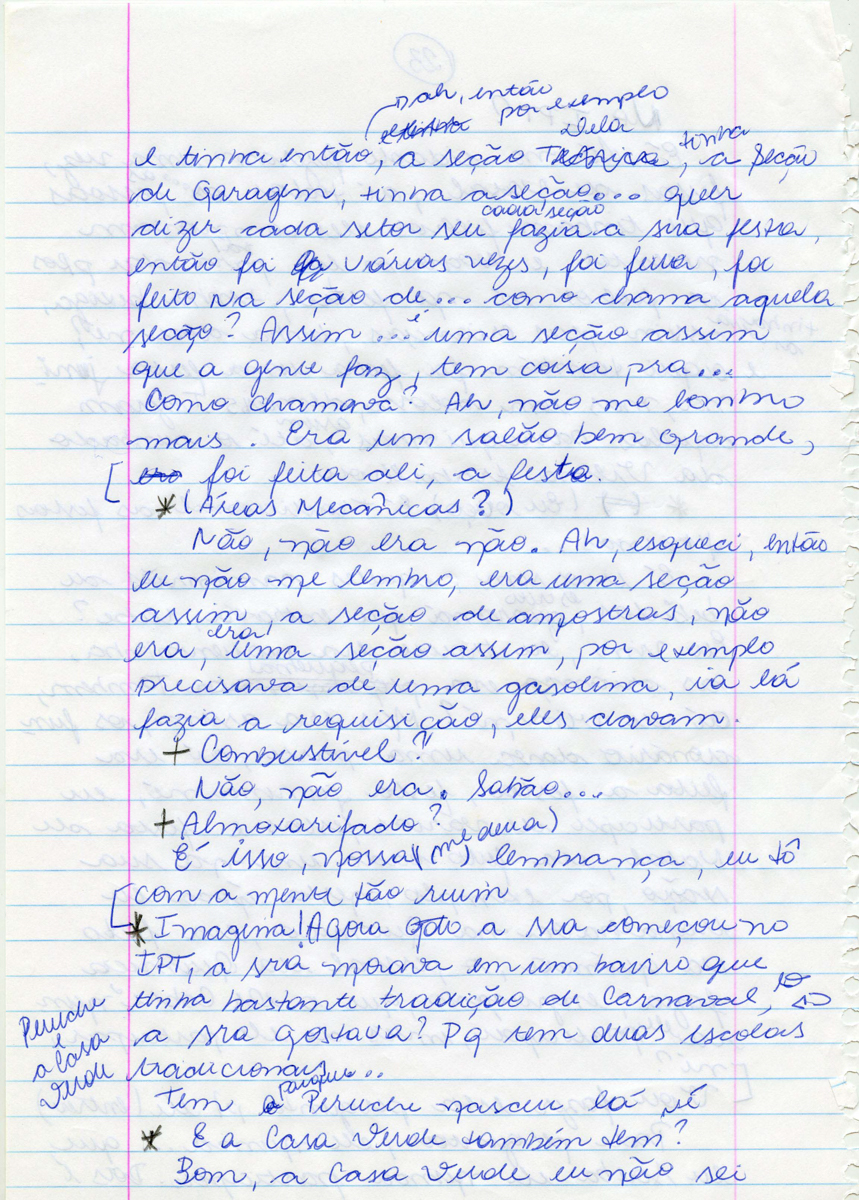 23
ah, então
por exemplo
Vela tinha
e tinha então, a seção Técnica, a Seção
de Garagem, tinha a seção... quer
cada seção
dizer cada setor seu fazia a sua festa,
então foi várias vezes, foi feita, foi
feito na seção de... como chama aquela
seção? Assim... é uma seção assim
que a gente faz, tem coisa pra...
Como chamava? Ah, não me lembro
mais. Era um salão bem grande,
[ foi feita ali, a festa.
* (Áreas Mecânicas?)
Não, não era não. Ah, esqueci, então
eu não me lembro, era uma seção
assim, a seção de amostras, não
era, era! uma seção assim, por exemplo
precisava de uma gasolina, ia lá
fazia a requisição, eles davam.
+ Combustível?
Não, não era. Sabão...
+ Almoxarifado?
É isso, nossa (me deua) lembrança, eu tô
com a mente tão ruim
[* Imagina! Agora qdo a sra começou no
IPT, a sra morava em um bairro que
tinha bastante tradição de Carnaval,
a sra gostava? Pq tem duas escolas
tradicionais...
Peruche
e
a Casa
Verde
Tem o Parque Peruche nasceu lá né
* E a Casa Verde também tem?
Bom, a Casa Verde eu não sei